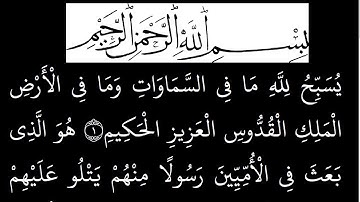 بِسْمِ اللَّهِ الرَّحْمَٰنِ الرَّحِيمِ
يُسَبِّحُ لِلَّهِ مَا فِى السَّمَاوَاتِ وَمَا فِى الْأَرْضِ
الْمَلِكِ الْقُدُّوسِ الْعَزِيزِ الْحَكِيمِ ١ هُوَ الَّذِى
بَعَثَ فِى الْأُمِّيِّينَ رَسُولًا مِنْهُمْ يَتْلُو عَلَيْهِمْ